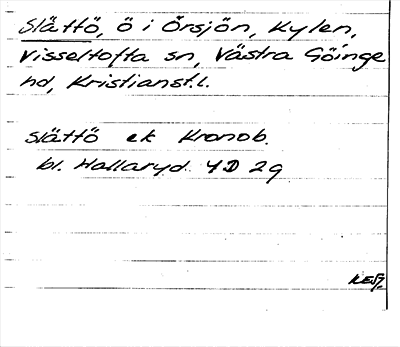 Slättö, ö i Örsjön, Kylen,
Visseltofta sn, Västra Göinge
hd, Kristianst.l.
Slättö ek Kronob.
bl. Hallaryd 4D 2g